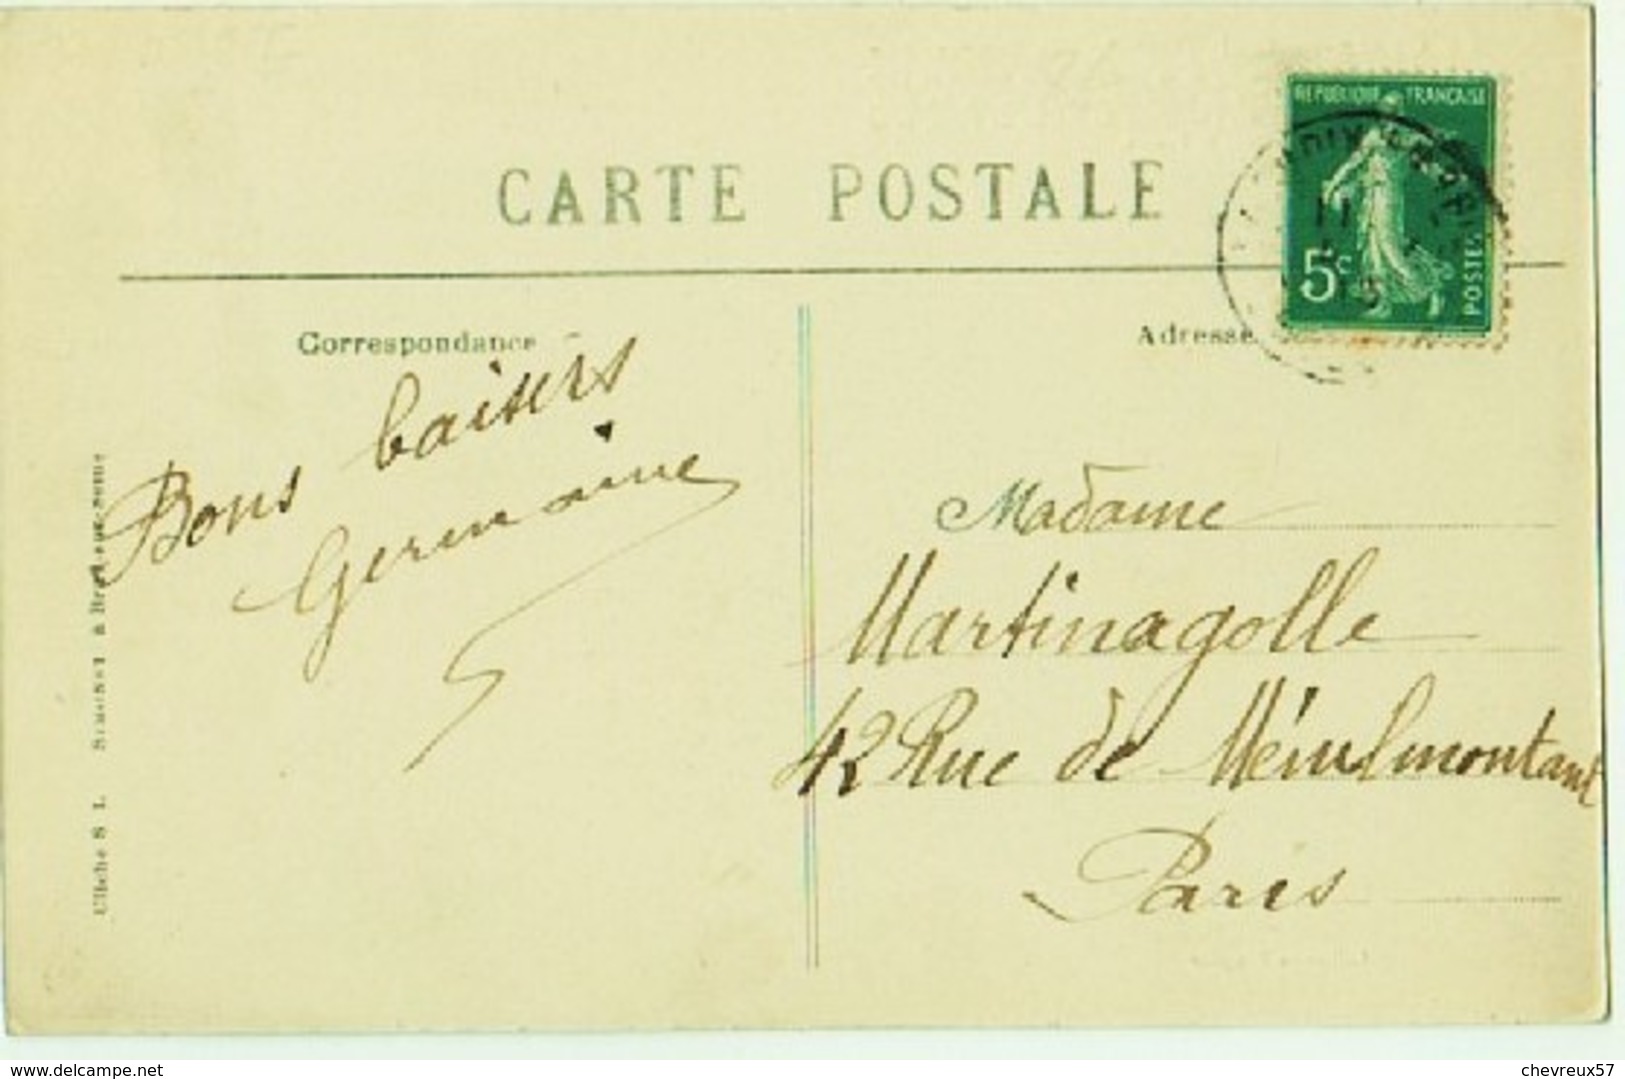 CARTE POSTALE
REPUBLIQUE FRANÇAISE
5c
POSTES
Correspondance
Adresse
Bons baisers
Germaine
Madame
Martinagolle
42 Rue de Ménilmontant
Paris
Cliché S L
delcampe.net
chevreux57